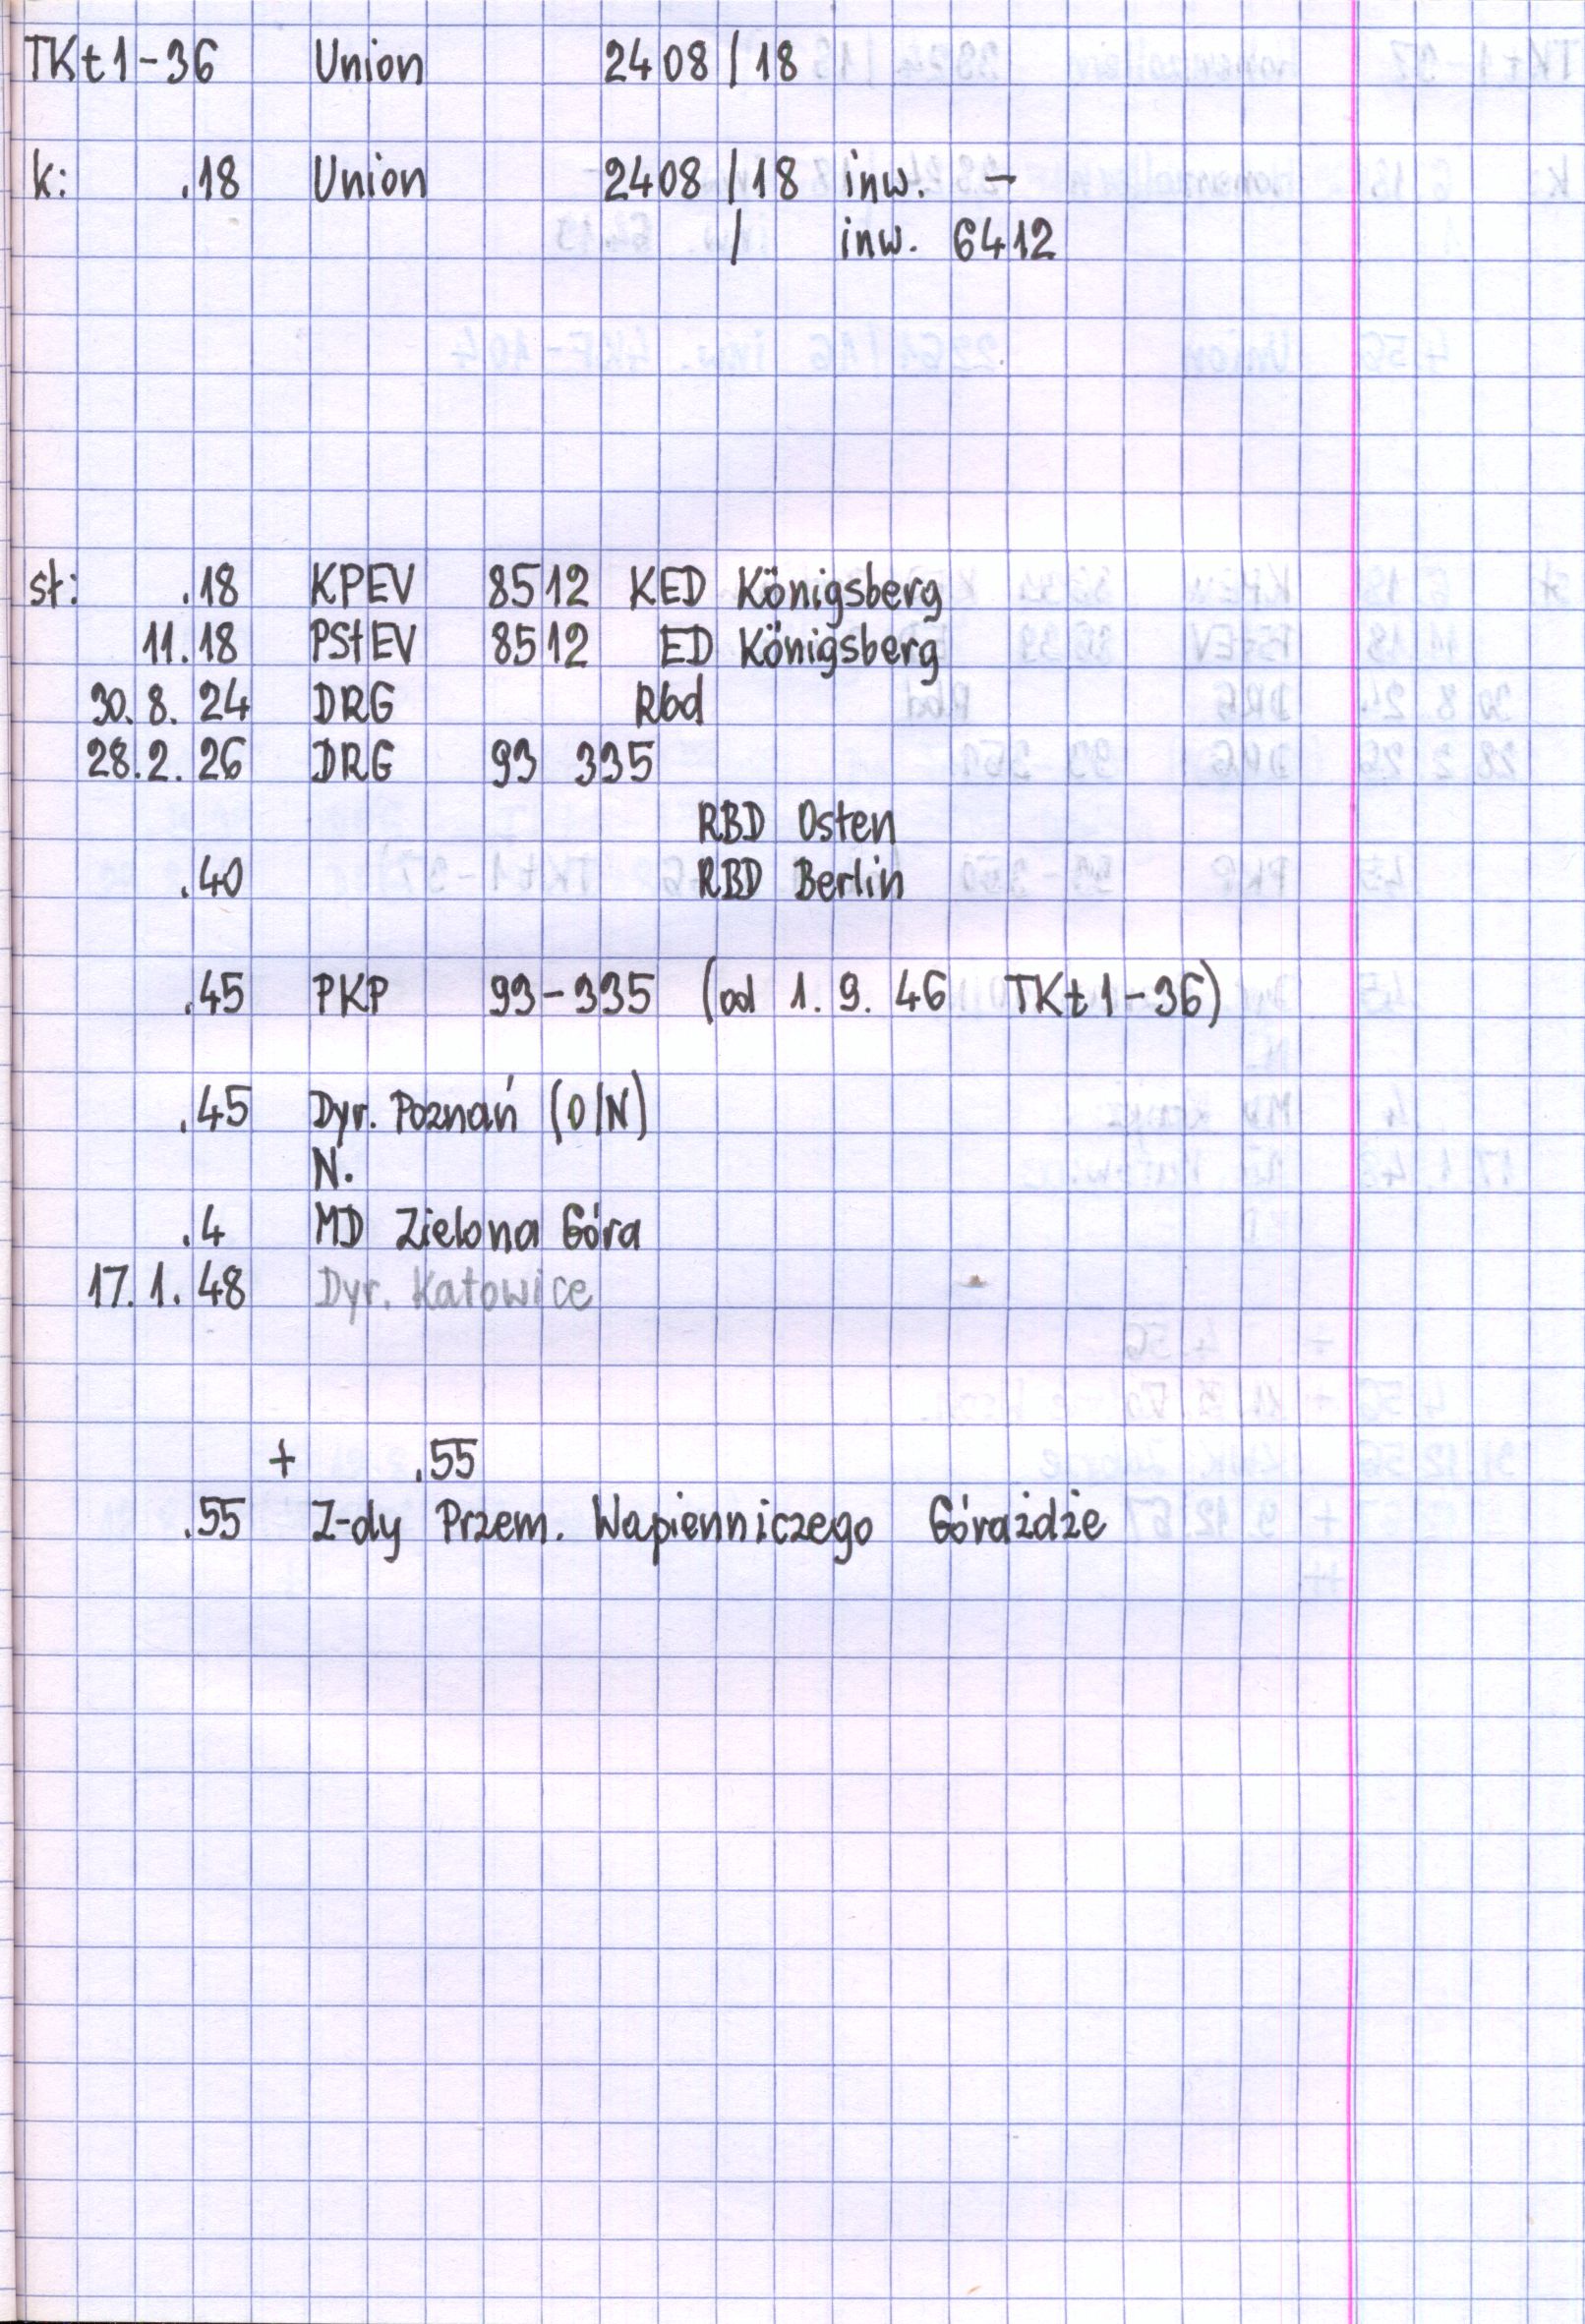 TKt1-36 Union 2408/18
k: .18 Union 2408/18 inw. -
/ inw. 6412
st: .18 KPEV 8512 KED Königsberg
11.18 PStEV 8512 ED Königsberg
30.8.24 DRG Rbd
28.2.26 DRG 93 335
RBD Osten
.40 RBD Berlin
.45 PKP 93-335 (od 1.9.46 TKt1-36)
.45 Dyr. Poznań (O/N)
N.
.4 MD Zielona Góra
17.1.48 Dyr. Katowice
+ .55
.55 Z-dy Przem. Wapienniczego Górażdże